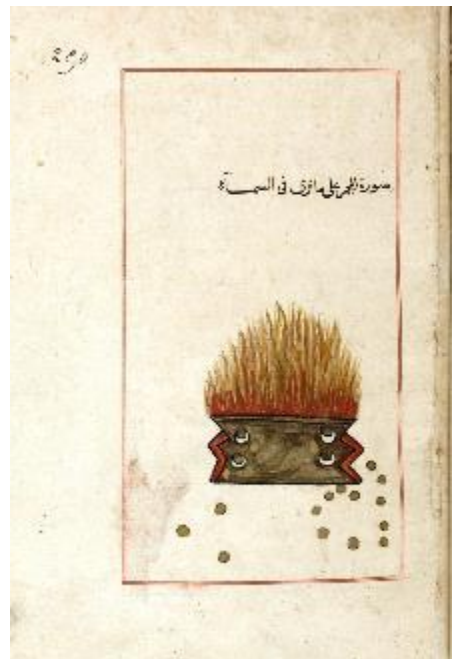 صورة المجمر على ما ترى في السمآء